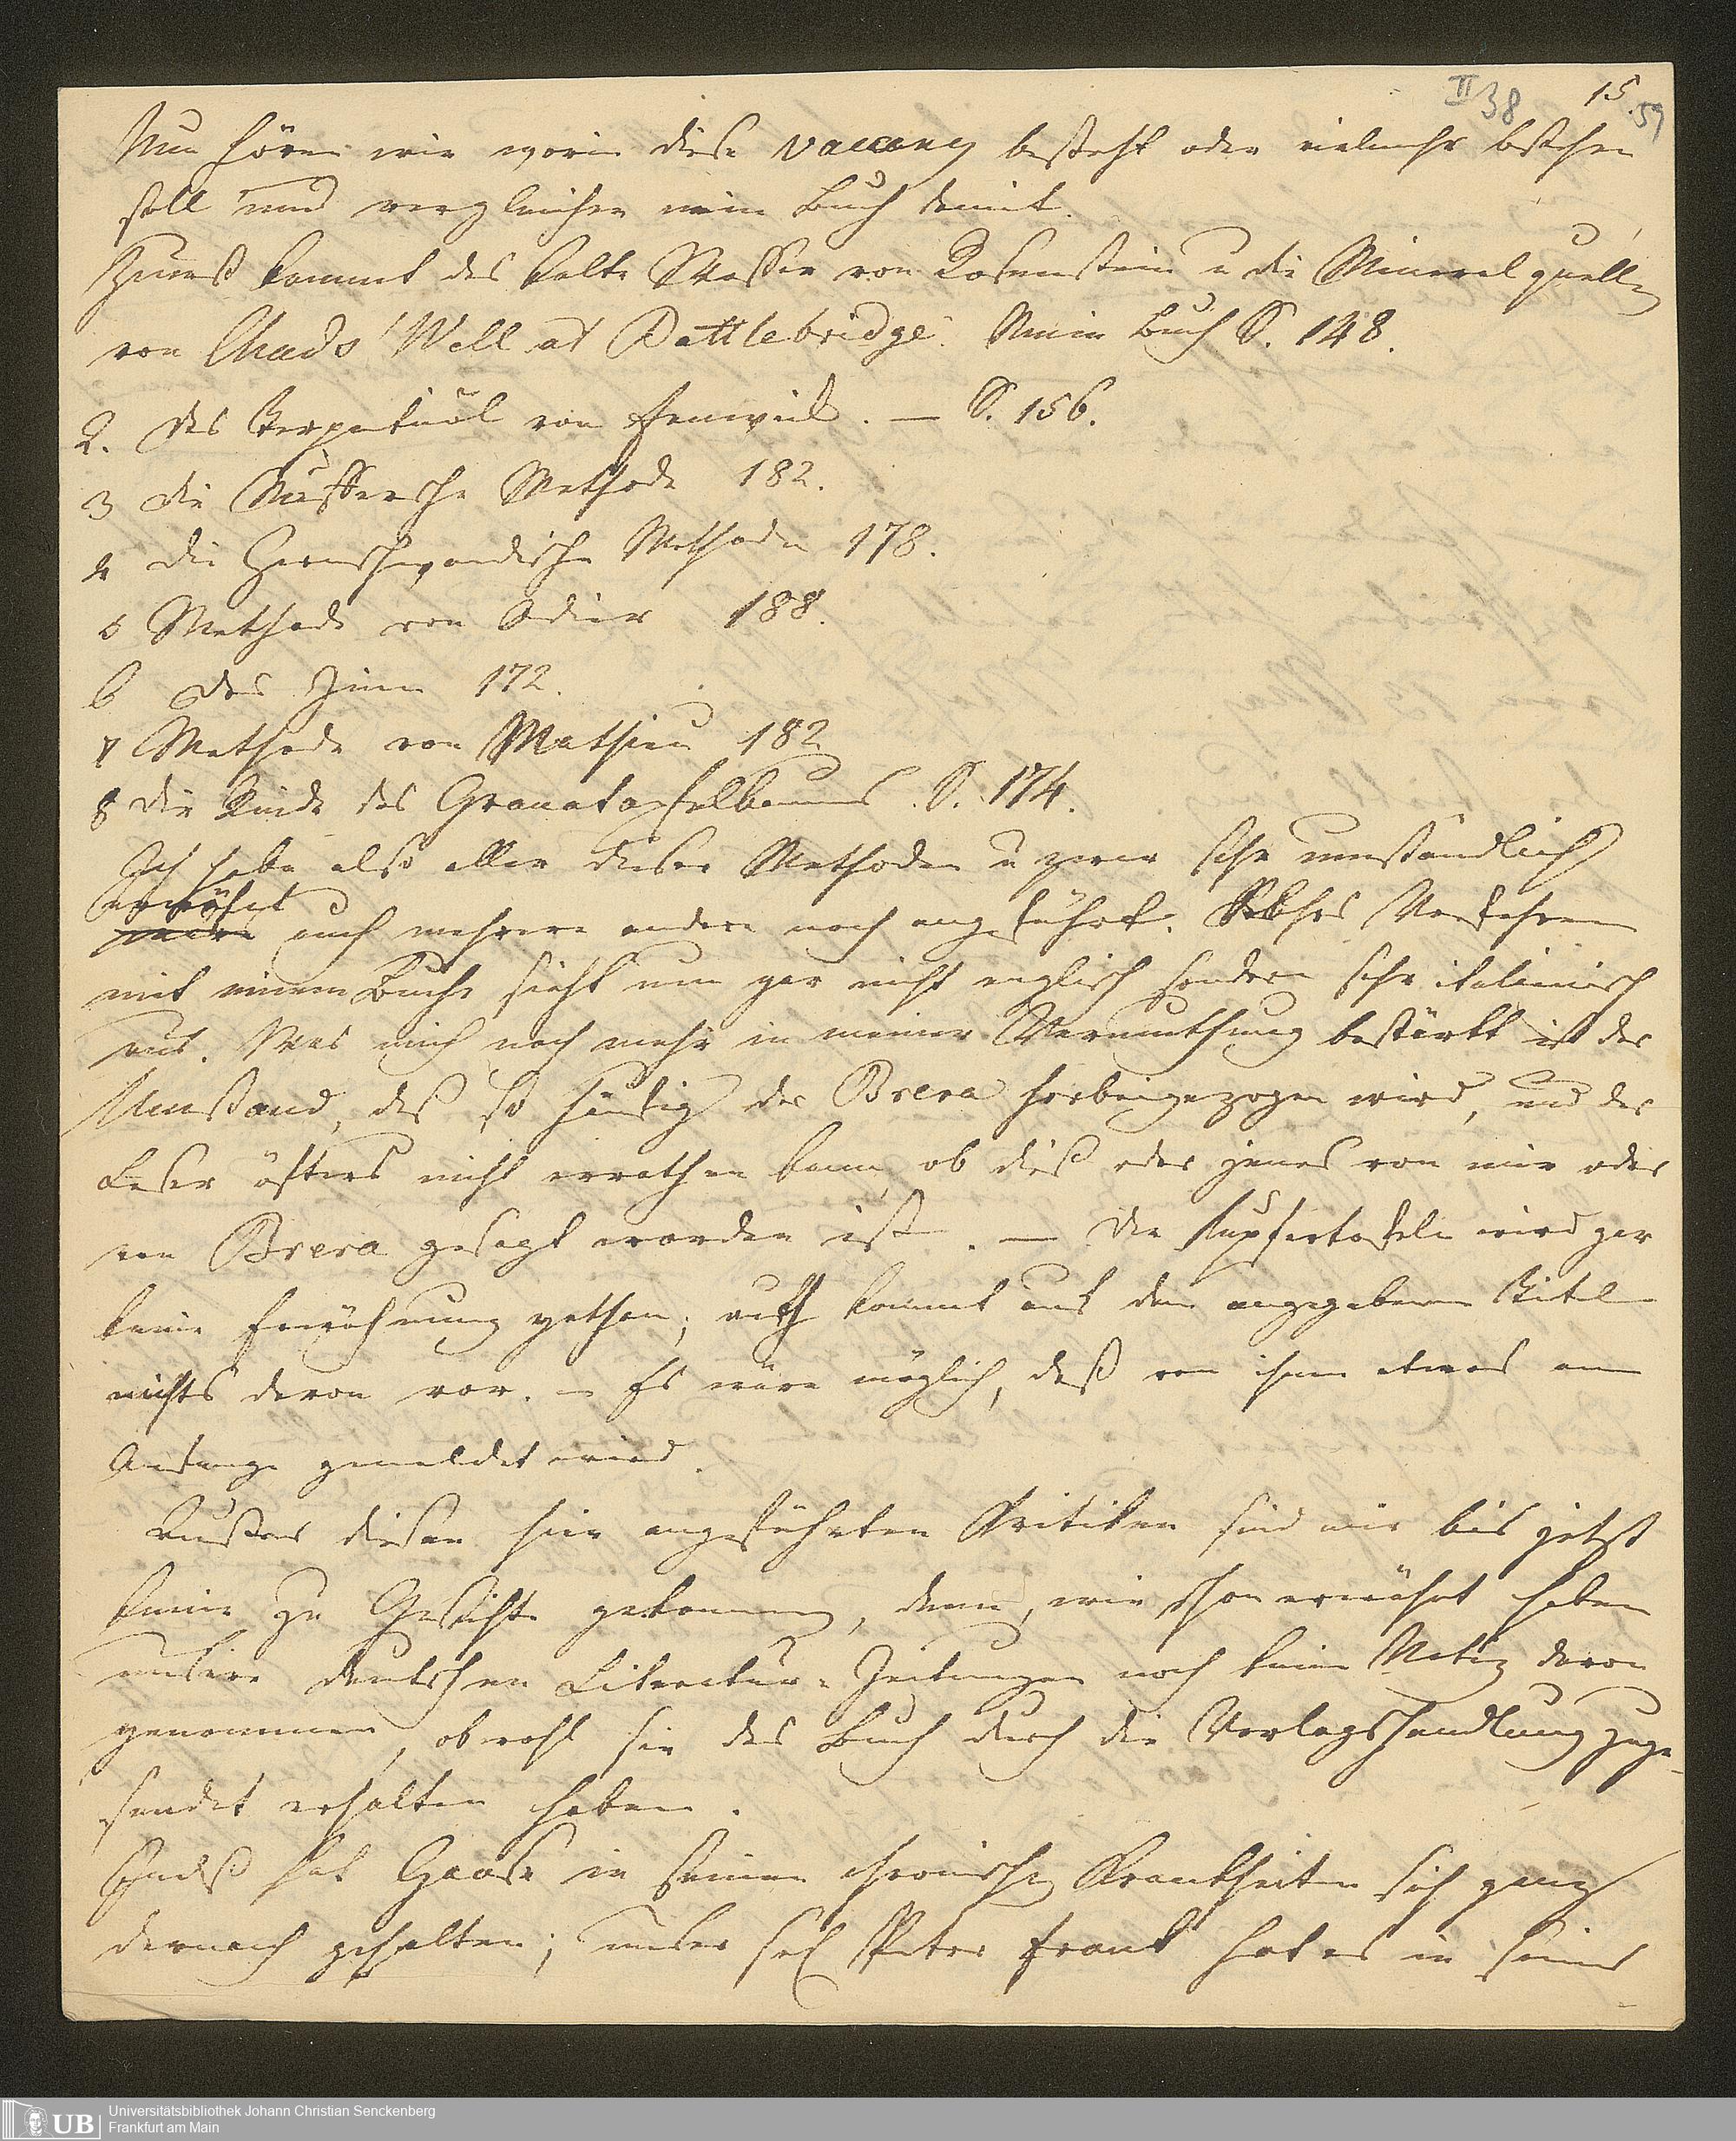 II 38 15. 59
Nun hören wir worin diese vacancy besteht oder vielmehr bestehen
soll und vergleichen mein Buch damit.
Zuerst kommt das kalte Wasser von Rosenstein u die Mineralquelle
von Chads' Well at Battlebridge. Mein Buch S. 148.
2. Das Terpentinöl von Fenwick. — S. 156.
3 die Nuffersche Methode 182.
4 die Herrnschwandische Methode 178.
5 Methode von Odier 188.
6 Das Zinn 172.
7 Methode von Mathieu 182
8 die Rinde des Granatapfelbaums. S. 174.
Ich habe also aller dieser Methoden u zwar sehr umständlich
erwähnt
auch mehrere andere noch angeführt. Solches Verfahren
mit einem Buche sieht nun gar nicht englisch sondern sehr italienisch
aus. Was mich noch mehr in meiner Vermuthung bestärkt ist der
Umstand, daß so häufig der Brera herbeigezogen wird, und der
Leser öfters nicht errathen kann, ob dieß oder jenes von mir oder
von Brera gesagt worden ist. — Der Kupfertafeln wird gar
keine Erwähnung gethan; auch kommt auf dem angegebenen Titel
nichts davon vor. — Es wäre möglich, daß von ihnen etwas am
Anfange gemeldet wird.
Ausser diesen hier angeführten Kritiken sind mir bis jetzt
keine zu Gesichte gekommen, denn, wie schon erwähnt haben
unsere deutschen Literatur-Zeitungen noch keine Notiz davon
genommen, obwohl sie das Buch durch die Verlagshandlung zuge-
sendet erhalten haben.
Indeß hat Haase in seinen chronischen Krankheiten sich ganz
darnach gehalten; unser sel Peter Frank hat es in seiner
Universitätsbibliothek Johann Christian Senckenberg
Frankfurt am Main
UB